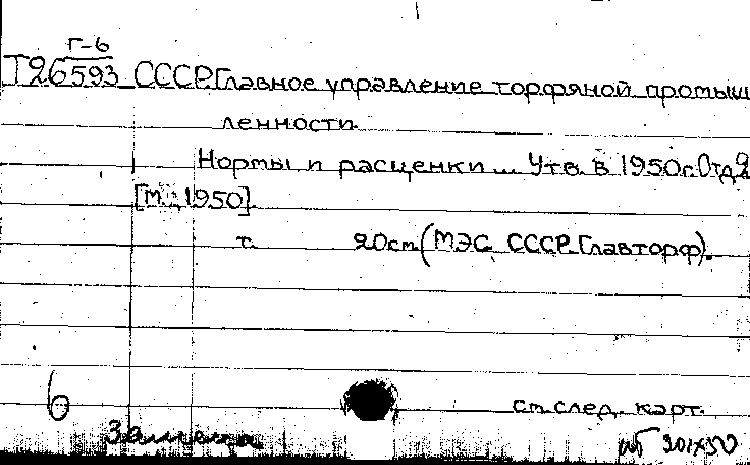 Г-6
Т26593 СССР.Главное управление торфяной промыш
ленности
Нормы и расценки ... Утв. в 1950г. Отд 2
[М., 1950].
т. 20см. (МЭС СССР. Главторф).
6 см. след. карт.
Замена